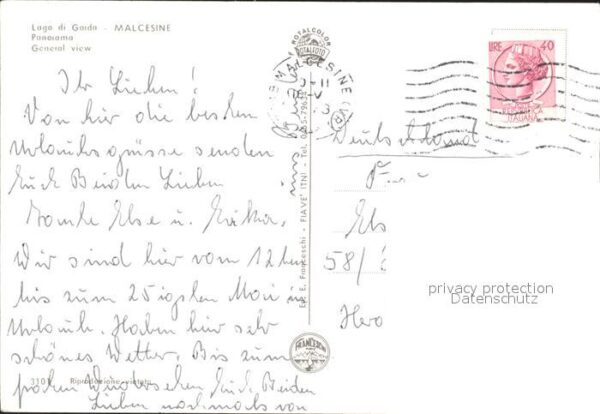 Lago di Garda - MALCESINE
Panorama
General view
Ihr Lieben!
Von hier die besten
Urlaubsgrüsse senden
Euch Beiden Lieben
Tante Else u.
Wir sind hier vom 12ten
bis zum 25igsten Mai in
Urlaub. Haben hier sehr
schönes Wetter. Bis zum
frohen Wiedersehen Euch Beiden
Lieben nochmals von
3101 Riproduzione vietata
Ed. E. Franceschi - FIAVE' (TN) - Tel. 0465-
ROTALCOLOR
ROTALFOTO
MALCESINE (VR)
LIRE 40
ITALIANA
Deutschland
Els
58/
privacy protection
Datenschutz
Hero
FRANCESCHI